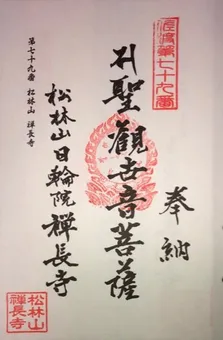 奉納
聖観世音菩薩
松林山日輪院禅長寺
第七十九番 松林山 禅長寺
松林山
禅長寺